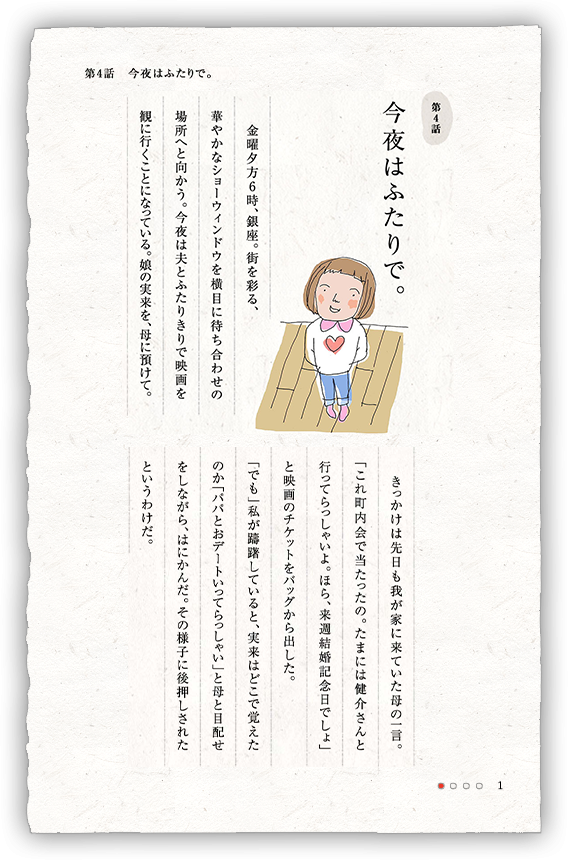 第4話　今夜はふたりで。
第4話
今夜はふたりで。
金曜夕方6時、銀座。街を彩る、
華やかなショーウィンドウを横目に待ち合わせの
場所へと向かう。今夜は夫とふたりきりで映画を
観に行くことになっている。娘の実来を、母に預けて。
きっかけは先日も我が家に来ていた母の一言。
「これ町内会で当たったの。たまには健介さんと
行ってらっしゃいよ。ほら、来週結婚記念日でしょ」
と映画のチケットをバッグから出した。
「でも」私が躊躇していると、実来はどこで覚えた
のか「パパとおデートいってらっしゃい」と母と目配せ
をしながら、はにかんだ。その様子に後押しされた
というわけだ。
1